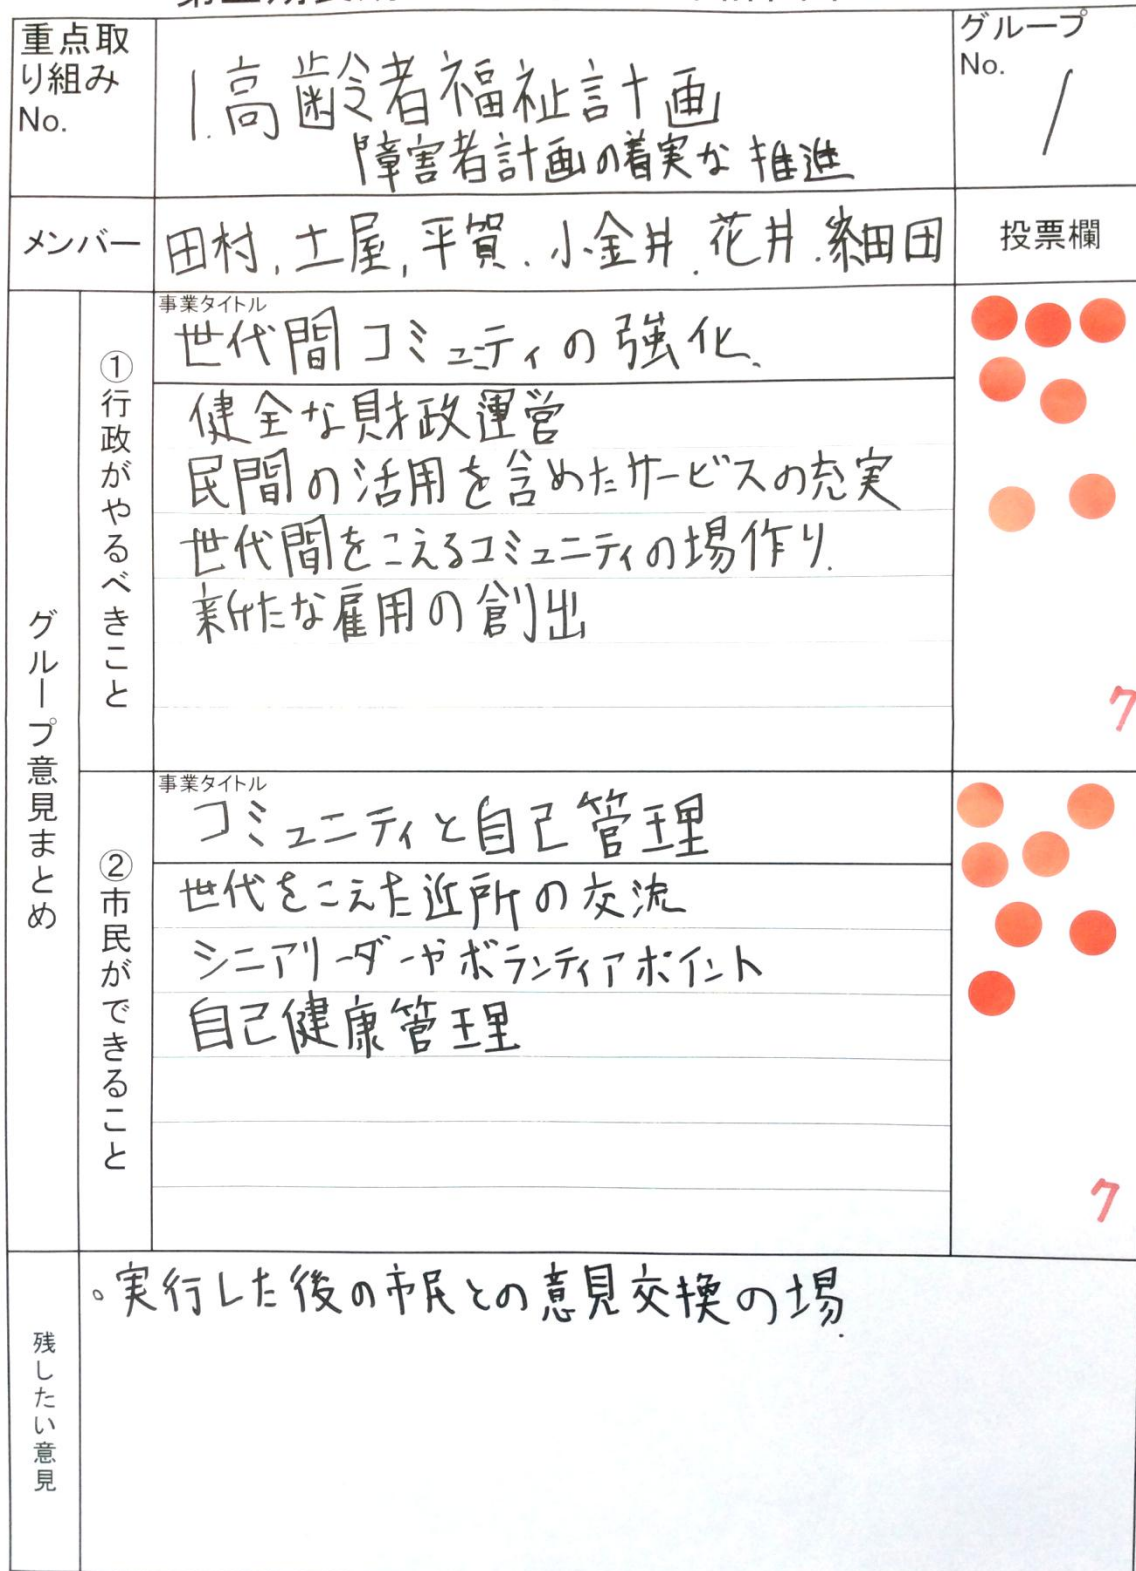 重点取
り組み
No.
1.高齢者福祉計画
障害者計画の着実な推進
グループ
No.
1
メンバー
田村,土屋,平賀.小金井.花井.細田
投票欄
グループ意見まとめ
①行政がやるべきこと
事業タイトル
世代間コミュニティの強化、
健全な財政運営
民間の活用を含めたサービスの充実
世代間をこえるコミュニティの場作り.
新たな雇用の創出
7
②市民ができること
事業タイトル
コミュニティと自己管理
世代をこえた近所の交流
シニアリーダーやボランティアポイント
自己健康管理
7
残したい意見
。実行した後の市民との意見交換の場.